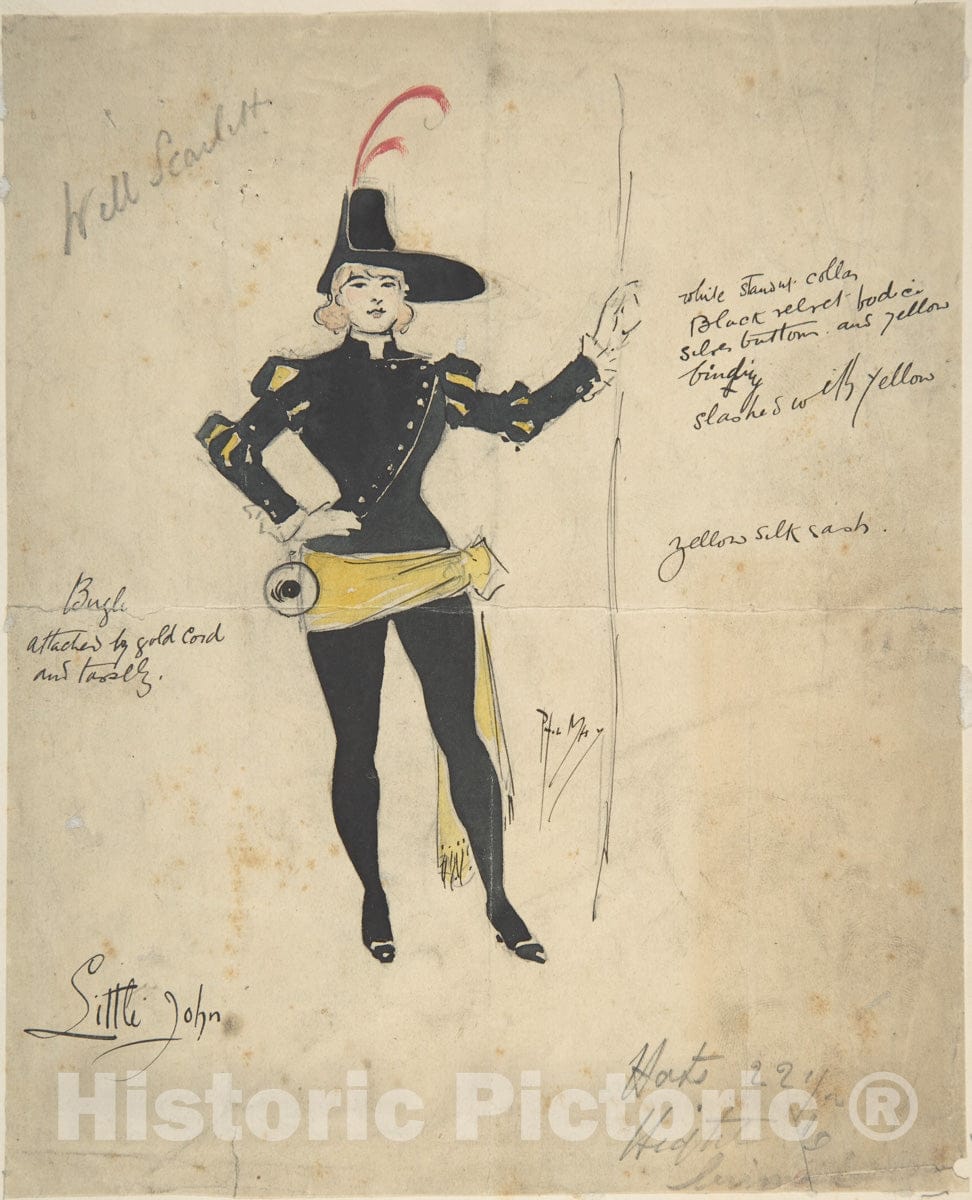 Will Scarlett
white standup collar
Black velvet bodice
silver buttons and yellow
binding
slashed with yellow
yellow silk sash.
Bugle
attached by gold cord
and tassels.
Little John
Hats 22
Historic Pictoric ®